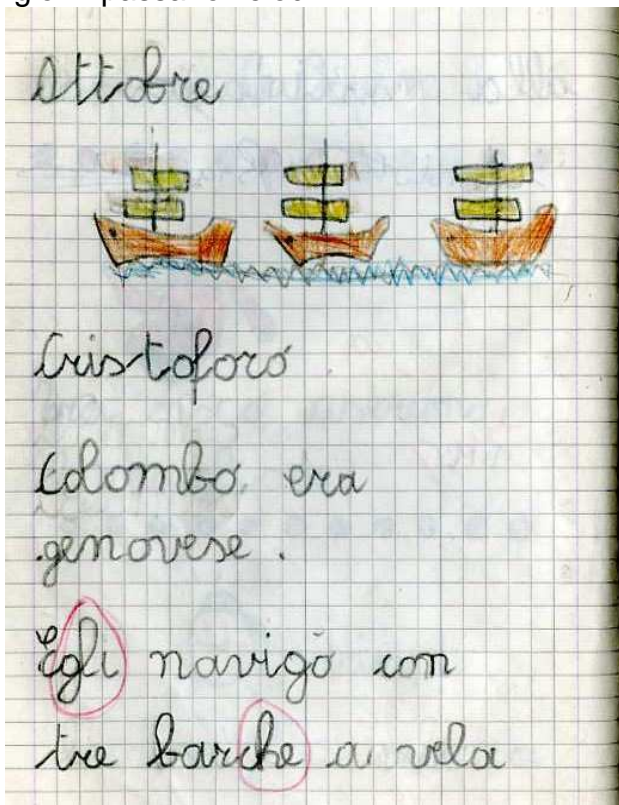 Ottobre
Cristoforo
Colombo era
genovese.
Egli navigò con
tre barche a vela